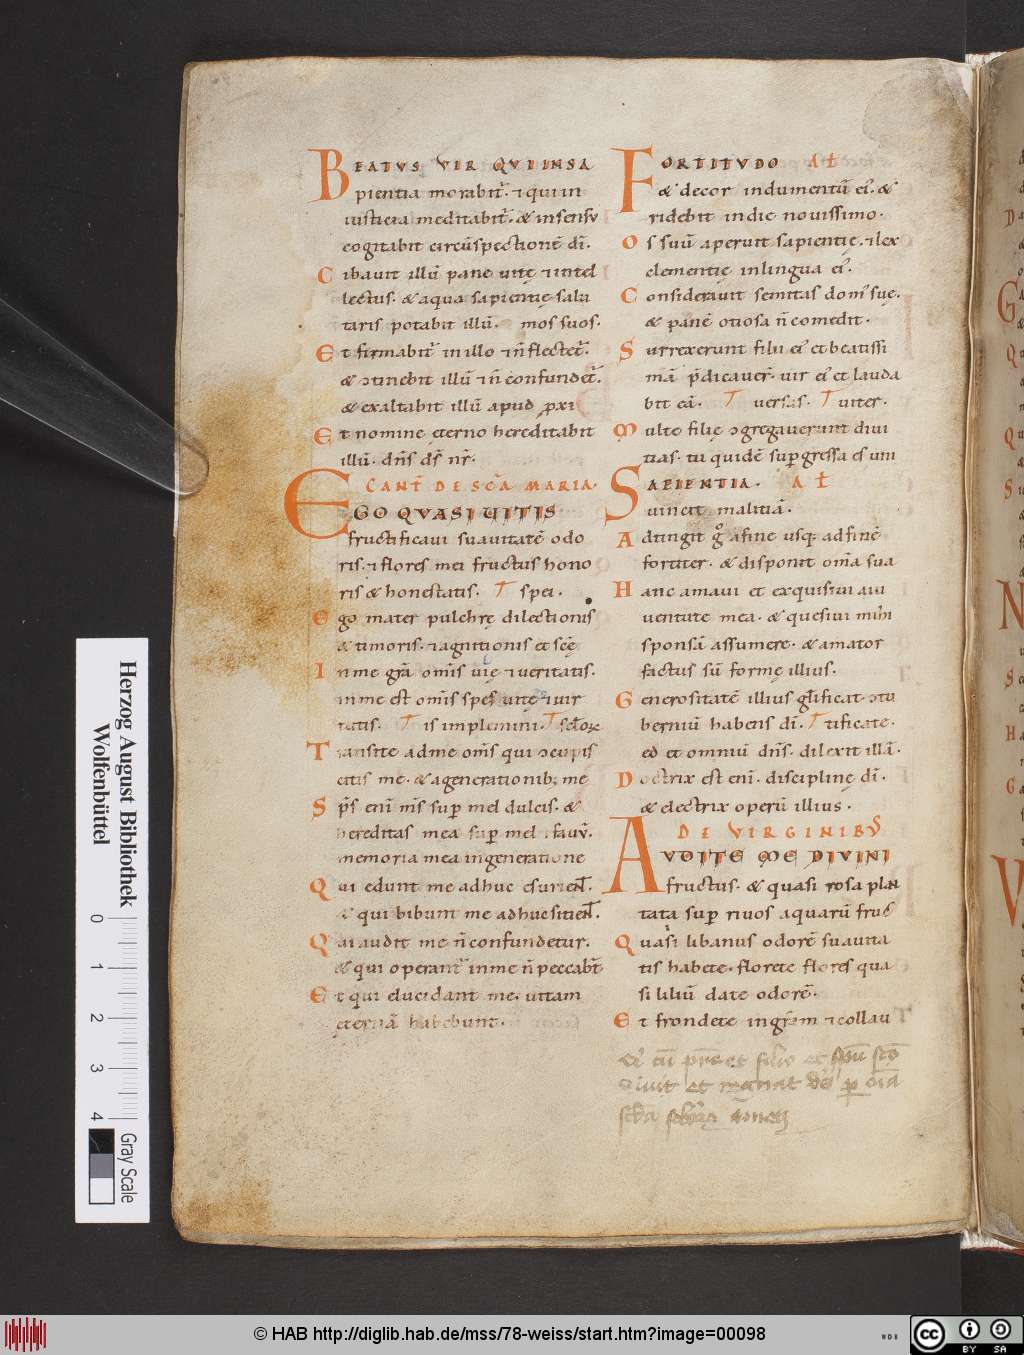 BEATUS VIR QUI INSA
pientia morabit᷑. ⁊ qui in
iusticia meditabit᷑. & insensu
cogitabit circūspectionē di̅.
Cibauit illū pane uitę ⁊ intel
lectus. & aqua sapientię salu
taris potabit illū. mos suos.
Et firmabit᷑ in illo ⁊ n̅ flectet᷑.
& ↄtinebit illū ⁊ n̅ confundet᷑.
& exaltabit illū apud ꝓxi
Et nomine ęterno hereditabit
illū. dn̅s ds̅ nr̅.
CANT̅ DE SC̅A MARIA.
EGO QVASI UITIS
fructificaui suauitatē odo
ris. ⁊ flores mei fructus hono
ris & honestatis. T spei.
Ego mater pulchrę dilectionis
& timoris. ⁊ agnitionis et sc̅ę
In me gr̅a om̅is uię ⁊ ueritatis.
in me est om̅is spes uitę ⁊ uir
tutis. T is implemini. T
Transite ad me om̅s qui ↄcupis
citis me. & a generationib; me
Sp̅s eni̅ m̅s suꝑ mel dulcis. &
hereditas mea suꝑ mel ⁊ fauū.
memoria mea in generatione
Qui edunt me adhuc esurient̅.
& qui bibunt me adhuc sitient̅.
Qui audit me n̅ confundetur.
& qui operant᷑ in me n̅ peccabt̅
Et qui elucidant me. uitam
ęternā habebunt.
FORTITVDO AL̅
& decor indumentū ei᷒. &
ridebit in die nouissimo.
Os suū aperuit sapientię. ⁊ lex
clementię in lingua ei᷒.
Considerauit semitas dom᷒ suę.
& panē otiosa n̅ comedit.
Surrexerunt filii ei᷒ et beatissi
mā p̅dicauer̅. uir ei᷒ et lauda
bit eā. T uersas. T uiter.
Multe filię ↄgregauerunt diui
tias. tu quidē suꝑgressa es uni
SAPIENTIA. AL̅
uincit malitiā.
Adtingit g̊ a fine usq; ad finē
fortiter. & disponit om̅a sua
Hanc amaui et exquisiui a iu
uentute mea. & quesiui mihi
sponsā assumere. & amator
factus sū formę illius.
Generositatē illius gl̅ificat. ↄtu
berniū habens di̅. T tificate.
ed et omniū dn̅s. dilexit illā.
Doctrix est eni̅. disciplinę di̅.
& electrix operū illius.
DE VIRGINIBVS
AVDITE ME DIVINI
fructus. & quasi rosa plan
tata suꝑ riuos aquarū fruc
Quasi libanus odorē suauita
tis habete. florete flores qua
si liliū date odorē.
Et frondete in gr̅am ⁊ collau
Herzog August Bibliothek
Wolfenbüttel
0 1 2 3 4
Gray Scale
© HAB http://diglib.hab.de/mss/78-weiss/start.htm?image=00098
WDB
CC BY SA